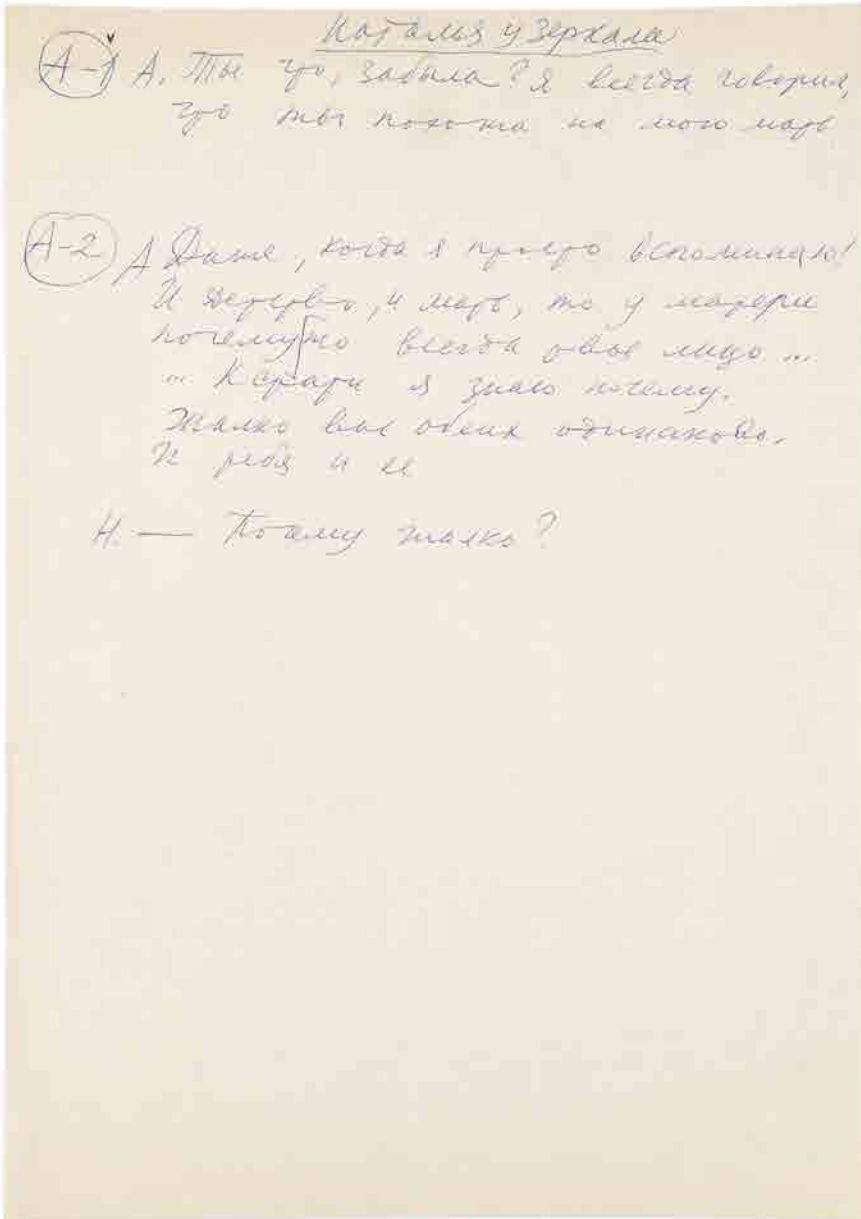 Наталья у зеркала
А-1 А. Ты что, забыла? Я всегда говорил,
что ты похожа на мою мать
А-2 А Даже, когда я просто вспоминаю!
И детство, и мать, то у матери
почему-то всегда твое лицо ...
... Кстати я знаю почему.
Жалко вас обеих одинаково.
И тебя и ее
Н. — Почему жалко?